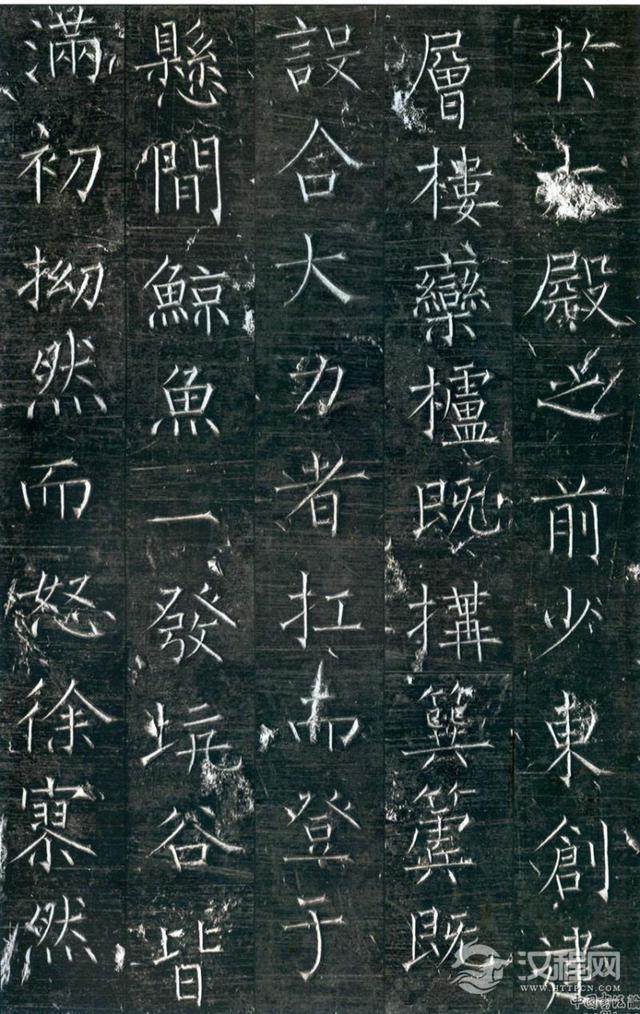 於大殿之前少東創建
層樓欒櫨既搆簨簴既
設合大力者扛而登于
懸鯨魚一發坑谷皆
滿初拗然而怒徐寥然
汉程网
WWW.HTTPCN.COM